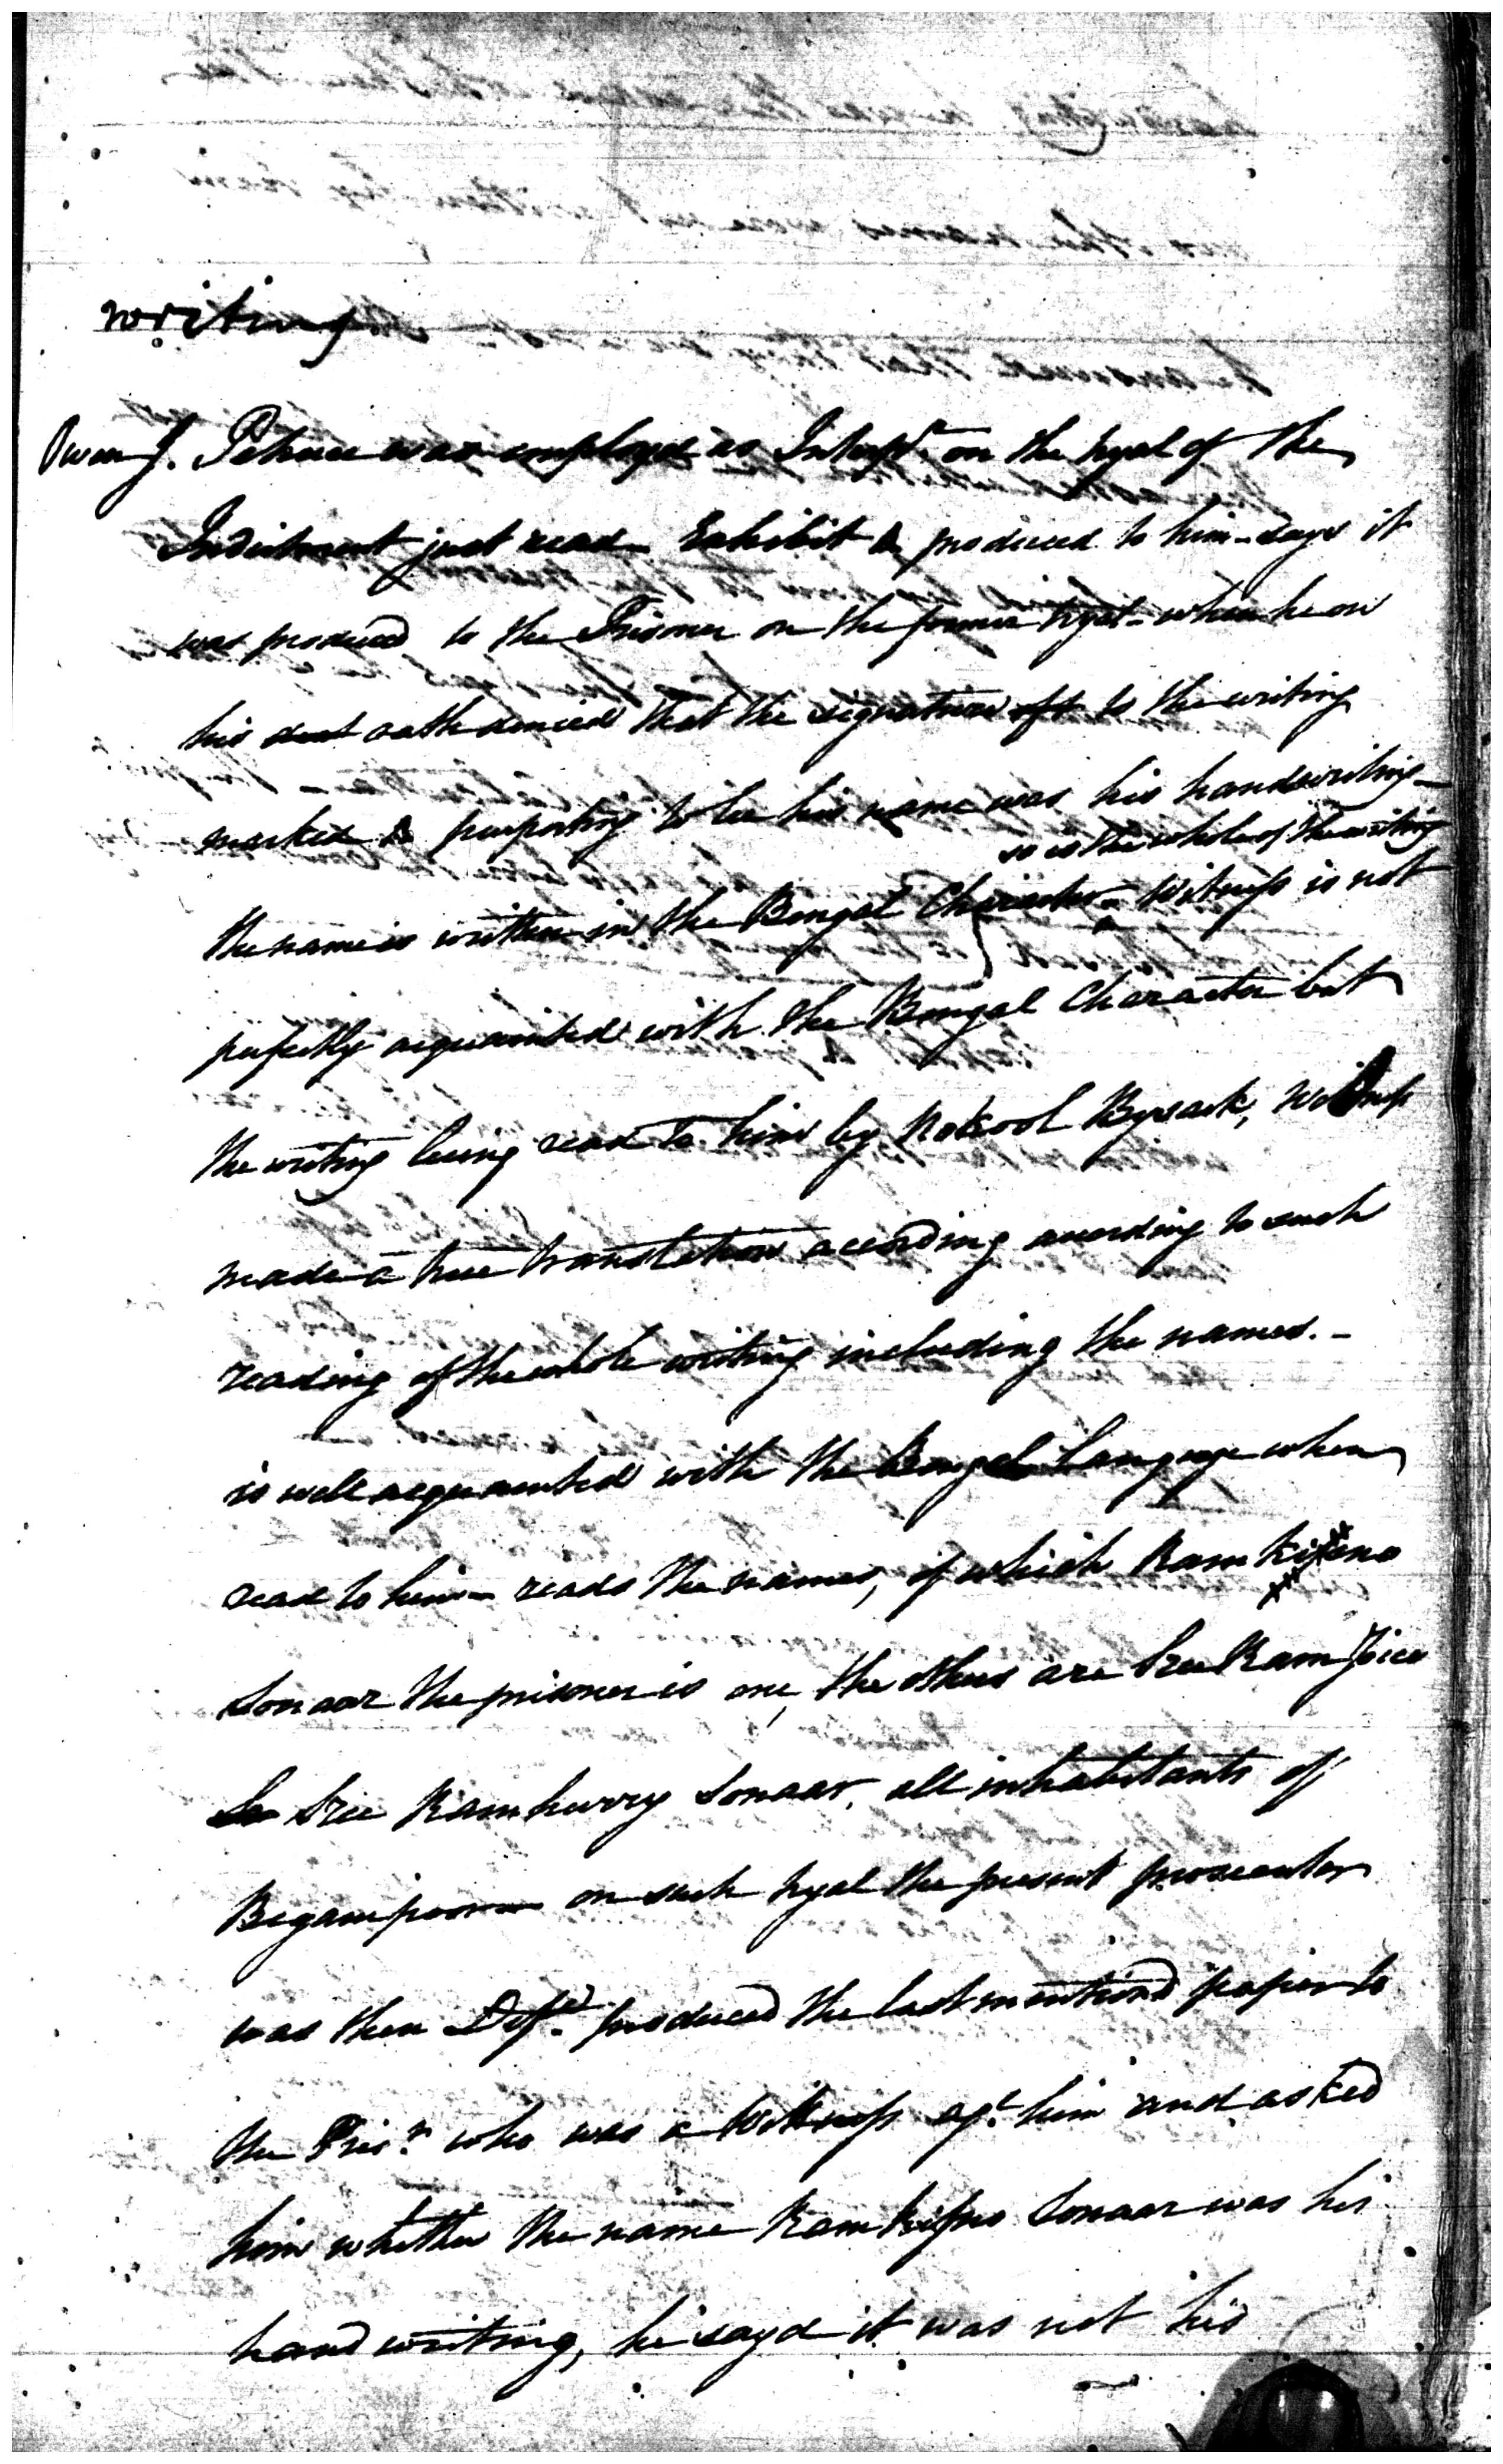 writing
Owen J. Petrucce was employed as Interpr. on the tryal of the
Indictment just read Exhibit A produced to him - says it
was produced to the Prisoner on the former tryal - when he on
his oath denied that the signature to the writing
marked A purporting to be his name was his handwriting -
so is the whole of the writing
the name is written in the Bengal Character - Witness is not
perfectly acquainted with the Bengal Character but
the writing being read to him by Nokool Bysack, Witness
made a true translation according according to such
reading of the whole writing including the names. -
is well acquainted with the Bengal Language when
read to him - reads the names, of which Ram Kissno
Sonaar the prisoner is one, the others are Sree Ram Jiew
Sree Ramhurry Sonaar, all inhabitants of
Begampoor - on such tryal the present prosecutor
was then Deft. produced the last mentiond paper to
the Prisr. who was a Witness agt. him and asked
him whether the name Ram Kissno Sonaar was his
hand writing, he sayd it was not his